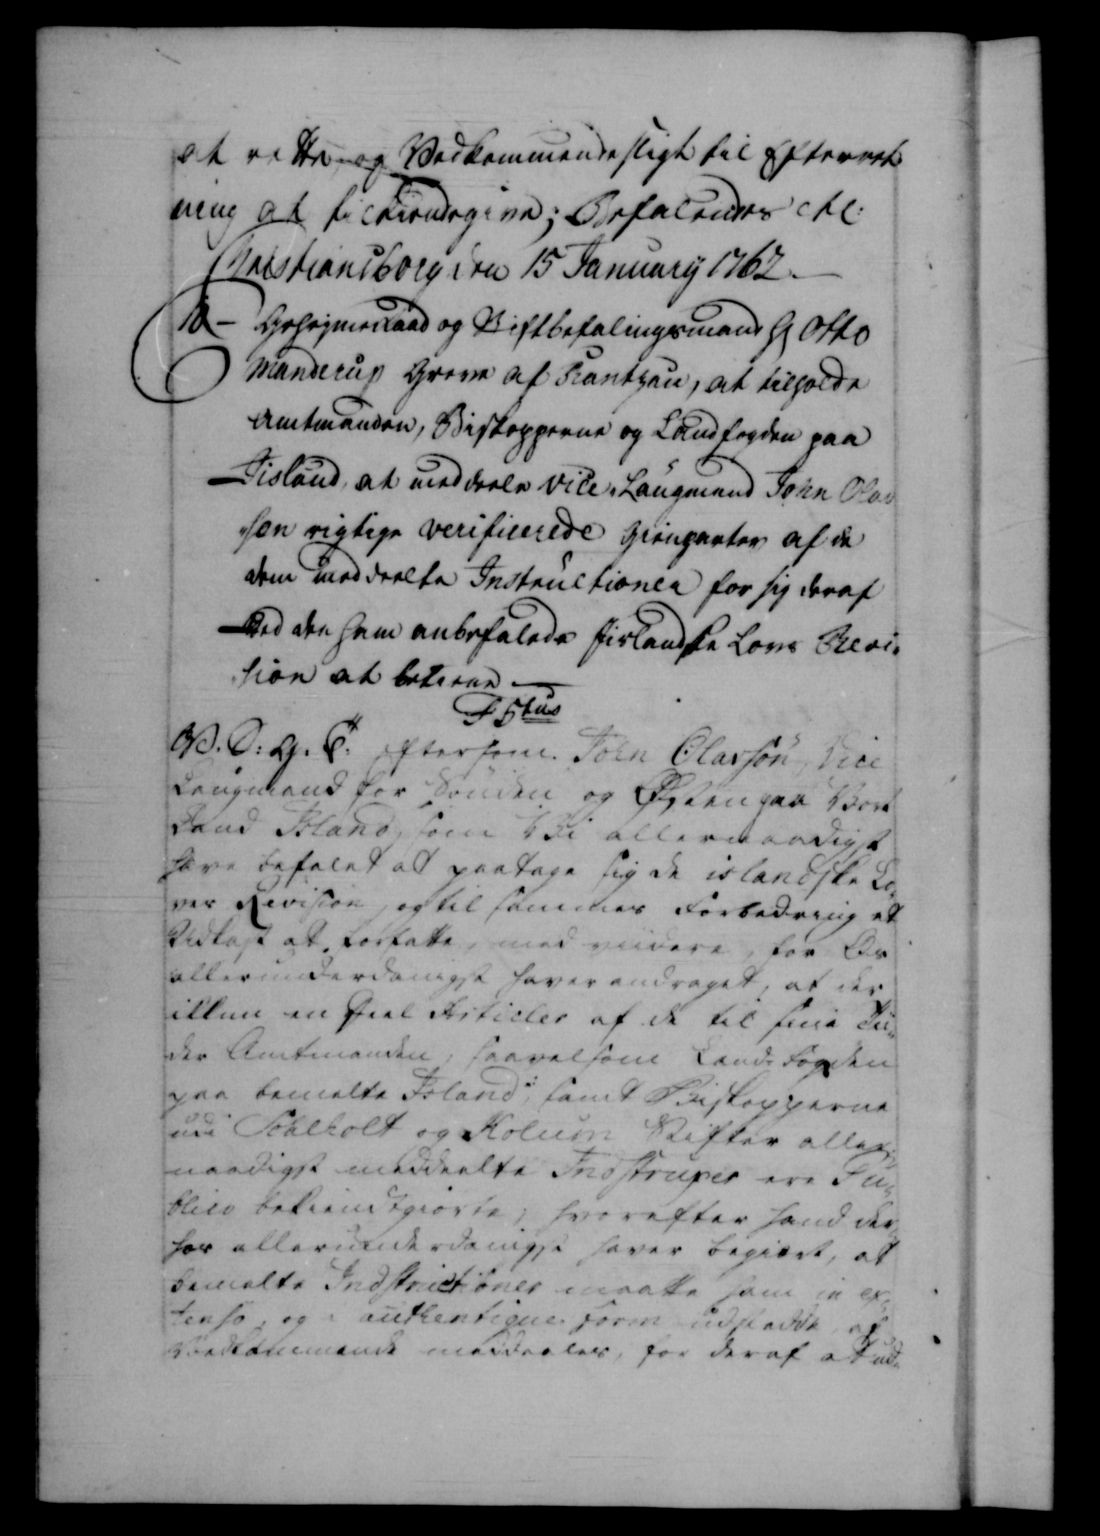 at rette og Vedkommende sligt til Efterret
ning at tilkiendegive; Befalendes etc:
Christiansborg den 15 January 1762.
10 - Geheimeraad og Stiftbefalingsmand H Otto
Manderup Greve af Rantzau, at tilholde
Amtmanden, Biskopperne og Landfogden paa
Jisland, at meddeele Vice-Laugmand John Olav
sen rigtige verificerede Gienparter af de
dem meddeelte Instructioner for sig deraf
ved den ham anbefalede Jislandske Lovs Revi-
sion at betiene
F 5tus
V. S: G. T: Eftersom John Olavsön, Vice
Laugmand for Sönden og Østen paa Vort
Land Island, som Vi allernaadigst
have befalet at paatage sig de islandske Lo-
ves Revision, og til sammes Forbedring et
Udkast at forfatte, med viidere, for Os
allerunderdanigst haver andraget, at der
ikkun en Deel Articler af de til sine Tii-
der Amtmanden, saavelsom Land-Fogden
paa bemelte Island, samt Biskopperne
udi Schalholt og Holum Stifter aller-
naadigst meddeelte Instruxer ere Pu-
blico bekiendtgiorte, hvorefter hand der-
for allerunderdanigst haver begiert, at
bemelte Instructioner maatte ham in ex-
tenso, og i authentique Form udstædde, af
Vedkommende meddeeles, for deraf at ud-